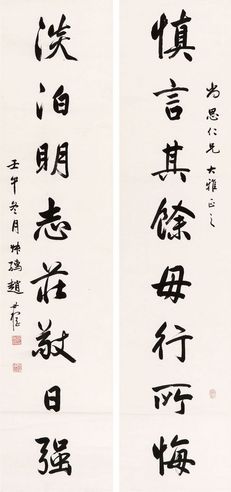 慎言其餘毋行所悔
尚思仁兄大雅正之
淡泊明志莊敬日强
壬午冬月 趙世